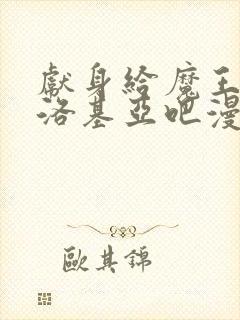 獻身給魔王
洛基亞吧漫
歐其錦